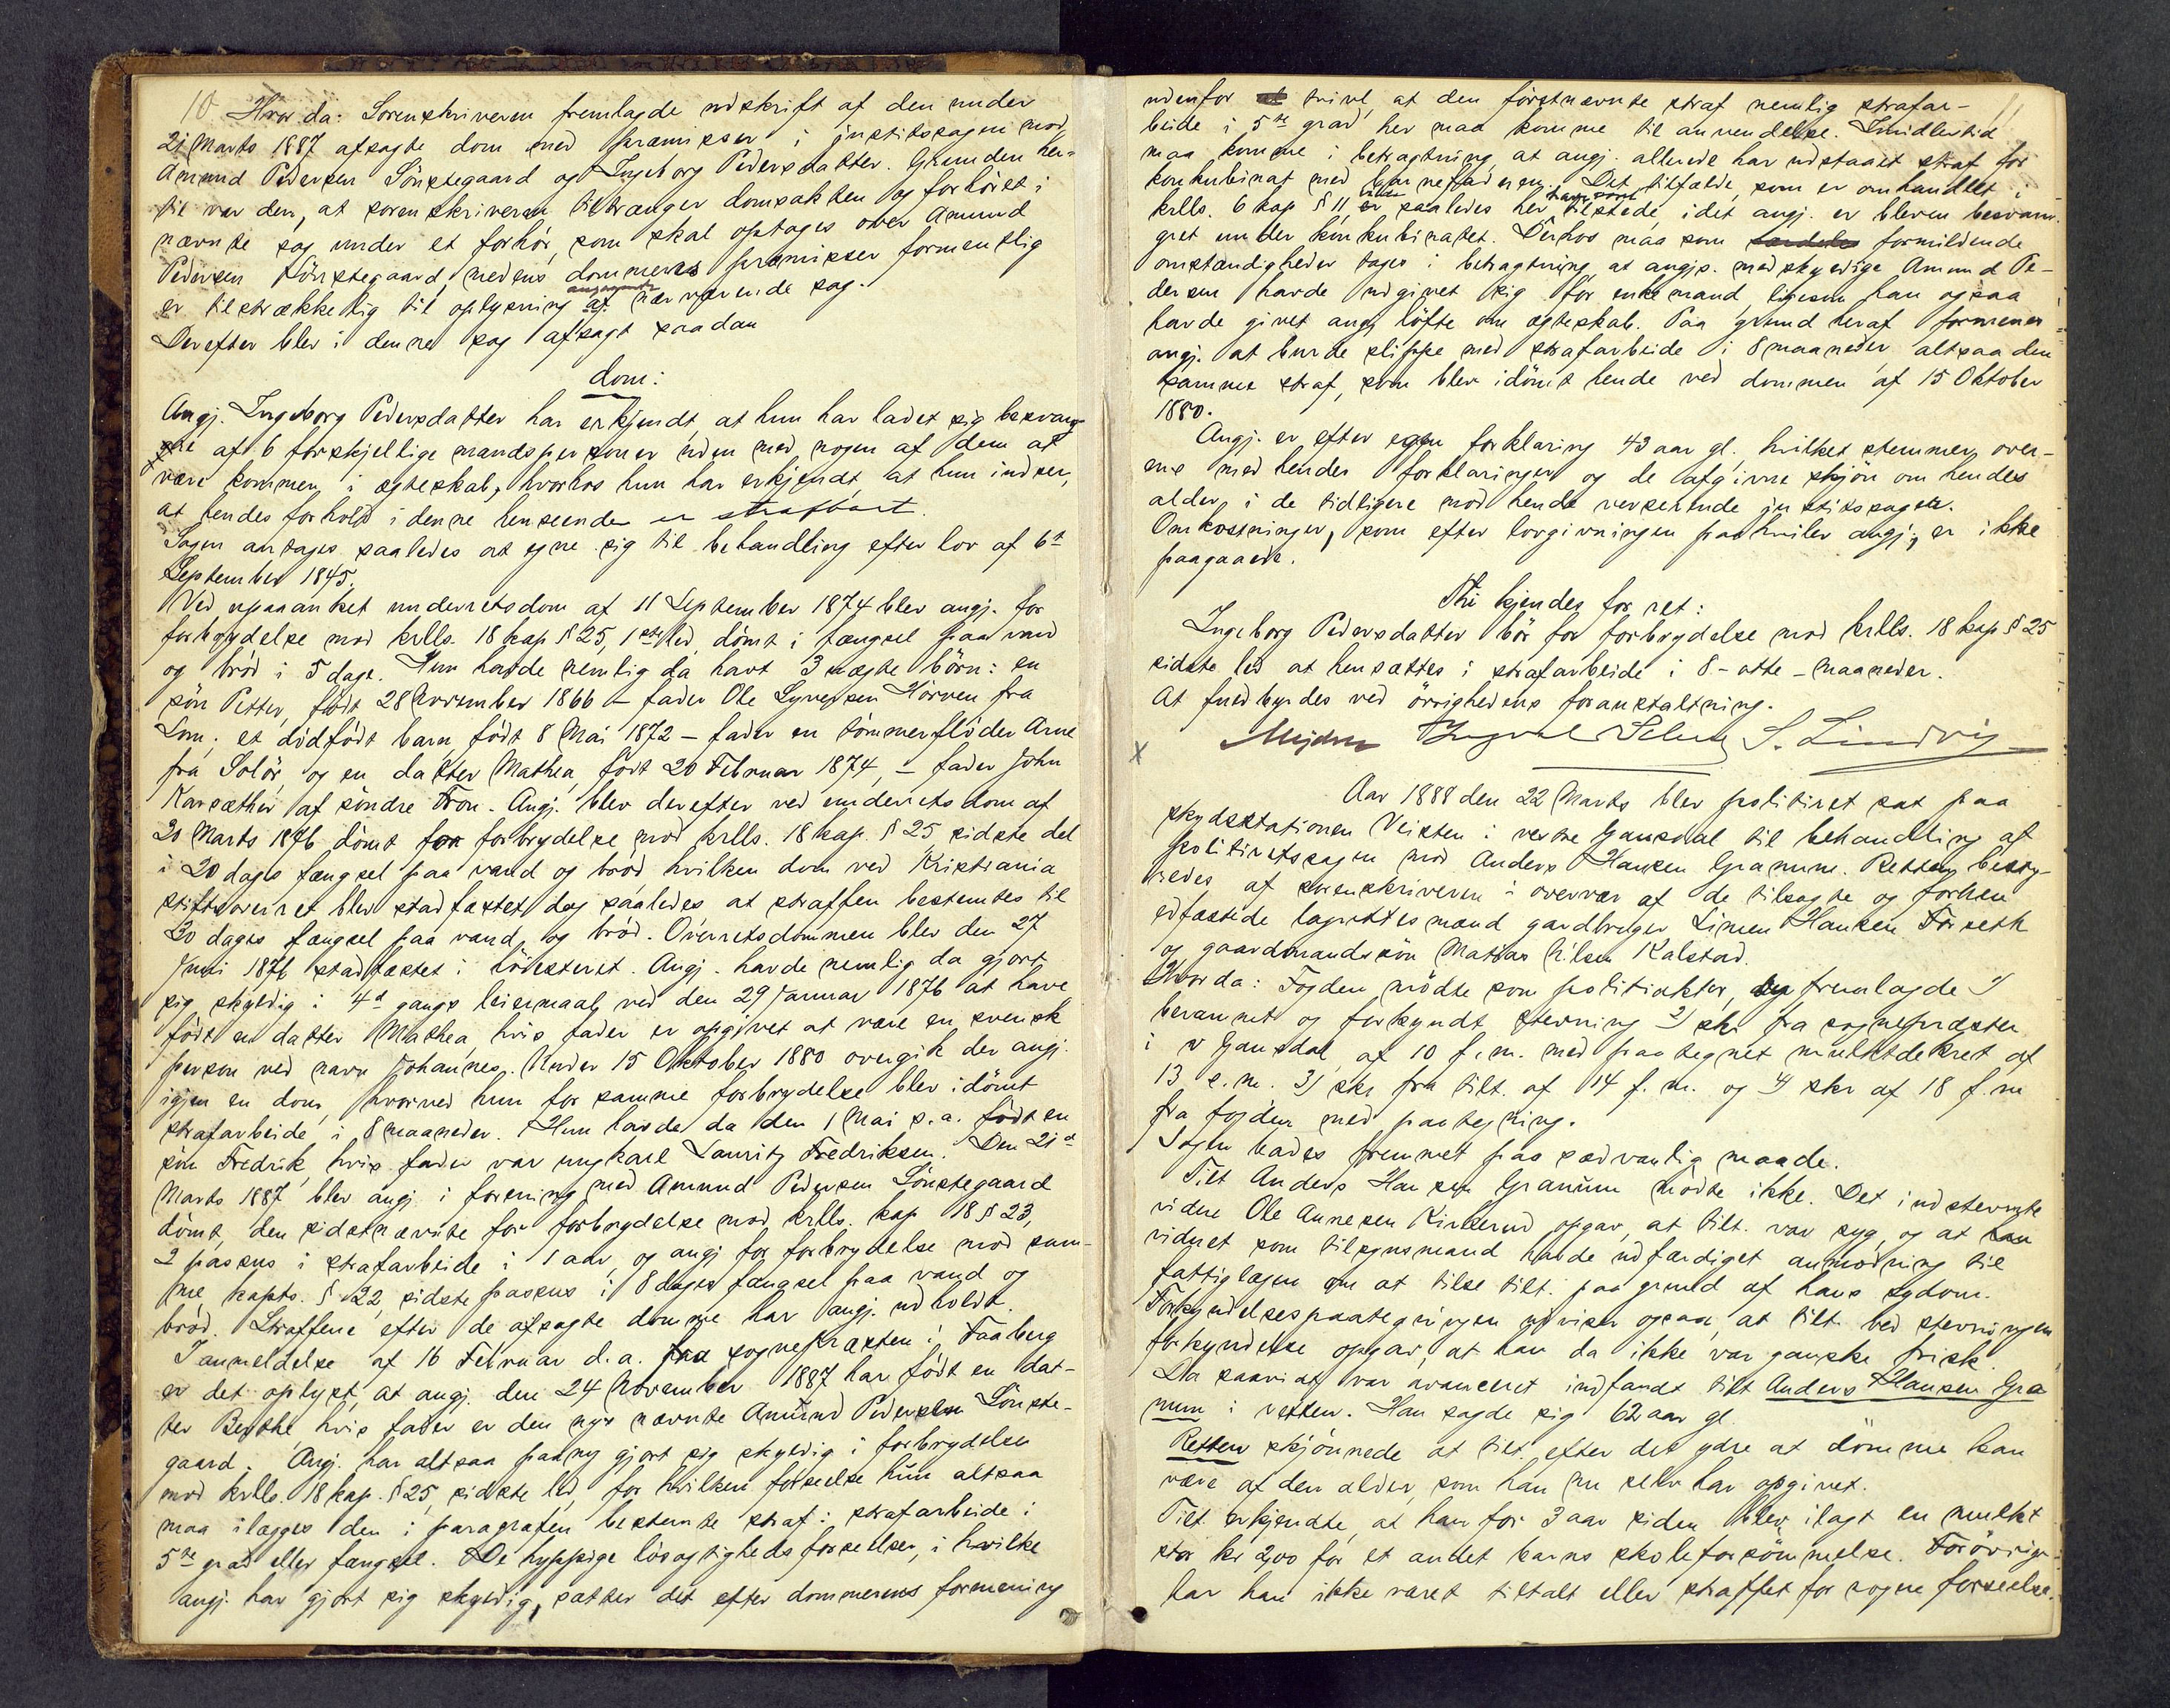 10 Hvorda: Sorenskriveren fremlagde udskrift af den under
21 Marts 1887 afsagte dom med præmisser i justitssagen mod
Amund Pedersen Lönstegaard og Ingeborg Pedersdatter. Grunden her-
til var den, at sorenskriveren tiltrænger domsakten og forhöret i
nævnte sag under et forhör, som skal optages over Amund
Pedersen Lönstegaard, medens dommens præmisser formentlig
er tilstrækkelig til oplysning angaaende nærværende sag.
Derefter blev i denne sag afsagt saadan
dom:
Angj. Ingeborg Pedersdatter har erkjendt, at hun har ladet sig besvang-
re af 6 forskjellige mandspersoner uden med nogen af dem at
være kommen i ægteskab, hvorhos hun har erkjendt, at hun indser,
at hendes forhold i denne henseende er strafbart.
Sagen antages saaledes at egne sig til behandling efter lov af 6te
September 1845.
Ved upaaanket underretsdom af 11 September 1874 blev angj. for
forbrydelse mod krlls. 18 kap § 25, 1ste led, dömt i fængsel paa vand
og bröd i 5 dage. Hun havde nemlig da havt 3 uægte börn: en
sön Petter, födt 28 November 1866 – fader Ole Syversen Hörven fra
Lom; et dödfödt barn, födt 8 Mai 1872 – fader en tömmerflöder Arne
fra Solör, og en datter Mathea, födt 20 Februar 1874, – fader John
Karsæther af söndre Fron. Angj. blev derefter ved underretsdom af
30 Marts 1876 dömt for forbrydelse mod krlls. 18 kap. § 25 sidste del
i 20 dages fængsel paa vand og bröd hvilken dom ved Kristiania
stiftsoverret blev stadfæstet dog saaledes at straffen bestemtes til
30 dages fængsel paa vand og bröd. Overretsdommen blev den 27
Juni 1876 stadfæstet i höiesteret. Angj. havde nemlig da gjort
sig skyldig i 4de gangs leiermaal ved den 29 Januar 1876 at have
födt en datter Mathea, hvis fader er opgivet at være en svensk
person ved navn Johannes. Under 15 Oktober 1880 overgik der angj.
igjen en dom, hvorved hun for samme forbrydelse blev idömt
strafarbeide i 8 maaneder. Hun havde da den 1 Mai s.a. födt en
sön Fredrik, hvis fader var ungkarl Lauritz Fredriksen. Den 21de
Marts 1887 blev angj. i forening med Amund Pedersen Lönstegaard
dömt, den sidstnævnte for forbrydelse mod krlls. kap 18 § 23,
2 passus i strafarbeide i 1 aar, og angj for forbrydelse mod sam-
me kapts. § 22 sidste passus i 8 dages fængsel paa vand og
bröd. Straffene efter de afsagte domme har angj. udholdt.
I anmeldelse af 16 Februar d.a. fra sognepræsten i Faaberg
er det oplyst, at angj. den 24 November 1887 har födt en dat-
ter Berthe, hvis fader er den nys nævnte Amund Pedersen Lönste-
gaard. Angj. har altsaa paany gjort sig skyldig i forbrydelse
mod krlls. 18 kap. § 25, sidste led, for hvilken forseelse hun altsaa
maa ilægges den i paragrafen bestemte straf: strafarbeide i
5te grad eller fængsel. De hyppige lösagtighedsforseelser, i hvilke
angj. har gjort sig skyldig, sætter det efter dommerens formening
11
udenfor tvivl, at den förstnævnte straf nemlig strafar-
beide i 5te grad, her maa komme til anvendelse. Imidlertid
maa komme i betragtning, at angj. allerede har udstaaet straf for
konkubinat med barnefaderen. Det tilfælde, som er omhandlet i
krlls. 6 kap § 11, er saaledes her tilstede, idet angj. er bleven besvan-
gret under konkubinatet. Derhos maa som særdeles formildende
omstændigheder tages i betragtning at angjs. medskyldige Amund Pe-
dersen havde udgivet sig for enkemand, ligesom han ogsaa
havde givet angj löfte om ægteskab. Paa grund heraf formenes
angj. at burde slippe med strafarbeide i 8 maaneder, altsaa den
samme straf, som blev idömt hende ved dommen af 15 Oktober
1880.
Angj. er efter egen forklaring 43 aar gl., hvilket stemmer over-
ens med hendes forklaringer og de afgivne skjön om hendes
alder i de tidligere mod hende verserende justitssager.
Omkostninger, som efter lovgivningen paahviler angj., er ikke
paagaaede.
Thi kjendes for ret:
Ingeborg Pedersdatter bör for forbrydelse mod krlls. 18 kap § 25
sidste led at hensættes i strafarbeide i 8 – otte – maaneder.
At fuldbyrdes ved övrighedens foranstaltning.
Mejdell S. Lindvig
x
Aar 1888 den 22 Marts blev politiret sat paa
skydsstationen Veisten i vestre Gausdal til behandling af
politiretssagen mod Anders Hansen Granum. Retten besty-
redes af sorenskriveren i overvær af de tilsagte og forhen
edfæstede lagrettesmænd gardbruger Simen Hansen Forseth
og gaardmandssön Mathias Nilsen Kalstad.
Hvorda: Fogden mödte som politiaktor, fremlagde 1)
berammet og forkyndt stevning 2) skr fra sognepræsten
i v Gausdal af 10 f.m. med paategnet mulktdekret af
13 s.m. 3) skr fra tilt. af 14 f.m. og 4) skr af 18 f.m
fra fogden med paategning.
Sagen bades fremmet paa sædvanlig maade.
Tilt Anders Hansen Granum mödte ikke. Det indstevnte
vidne Ole Annesen Kinderud opgav, at tilt. var syg, og at
vidnet som tilsynsmand havde udfærdiget anmodning til
fattiglægen om at tilse tilt. paa grund af hans sygdom.
Forkyndelsespaategningen udviser ogsaa, at tilt. ved stevningens
forkyndelse opgav, at han da ikke var ganske frisk.
Da saavidt var avanceret indfandt tilt Anders Hansen Gra
num i retten. Han sagde sig 62 aar gl.
Retten skjönnede at tilt. efter det ydre at dömme kan
være af den alder, som han nu selv har opgivet.
Tilt. erkjendte, at han for 3 aar siden blev ilagt en mulkt
stor kr 2,00 for et andet barns skoleforsömmelse. Forövrigt
har han ikke været tiltalt eller straffet for nogen forseelse.